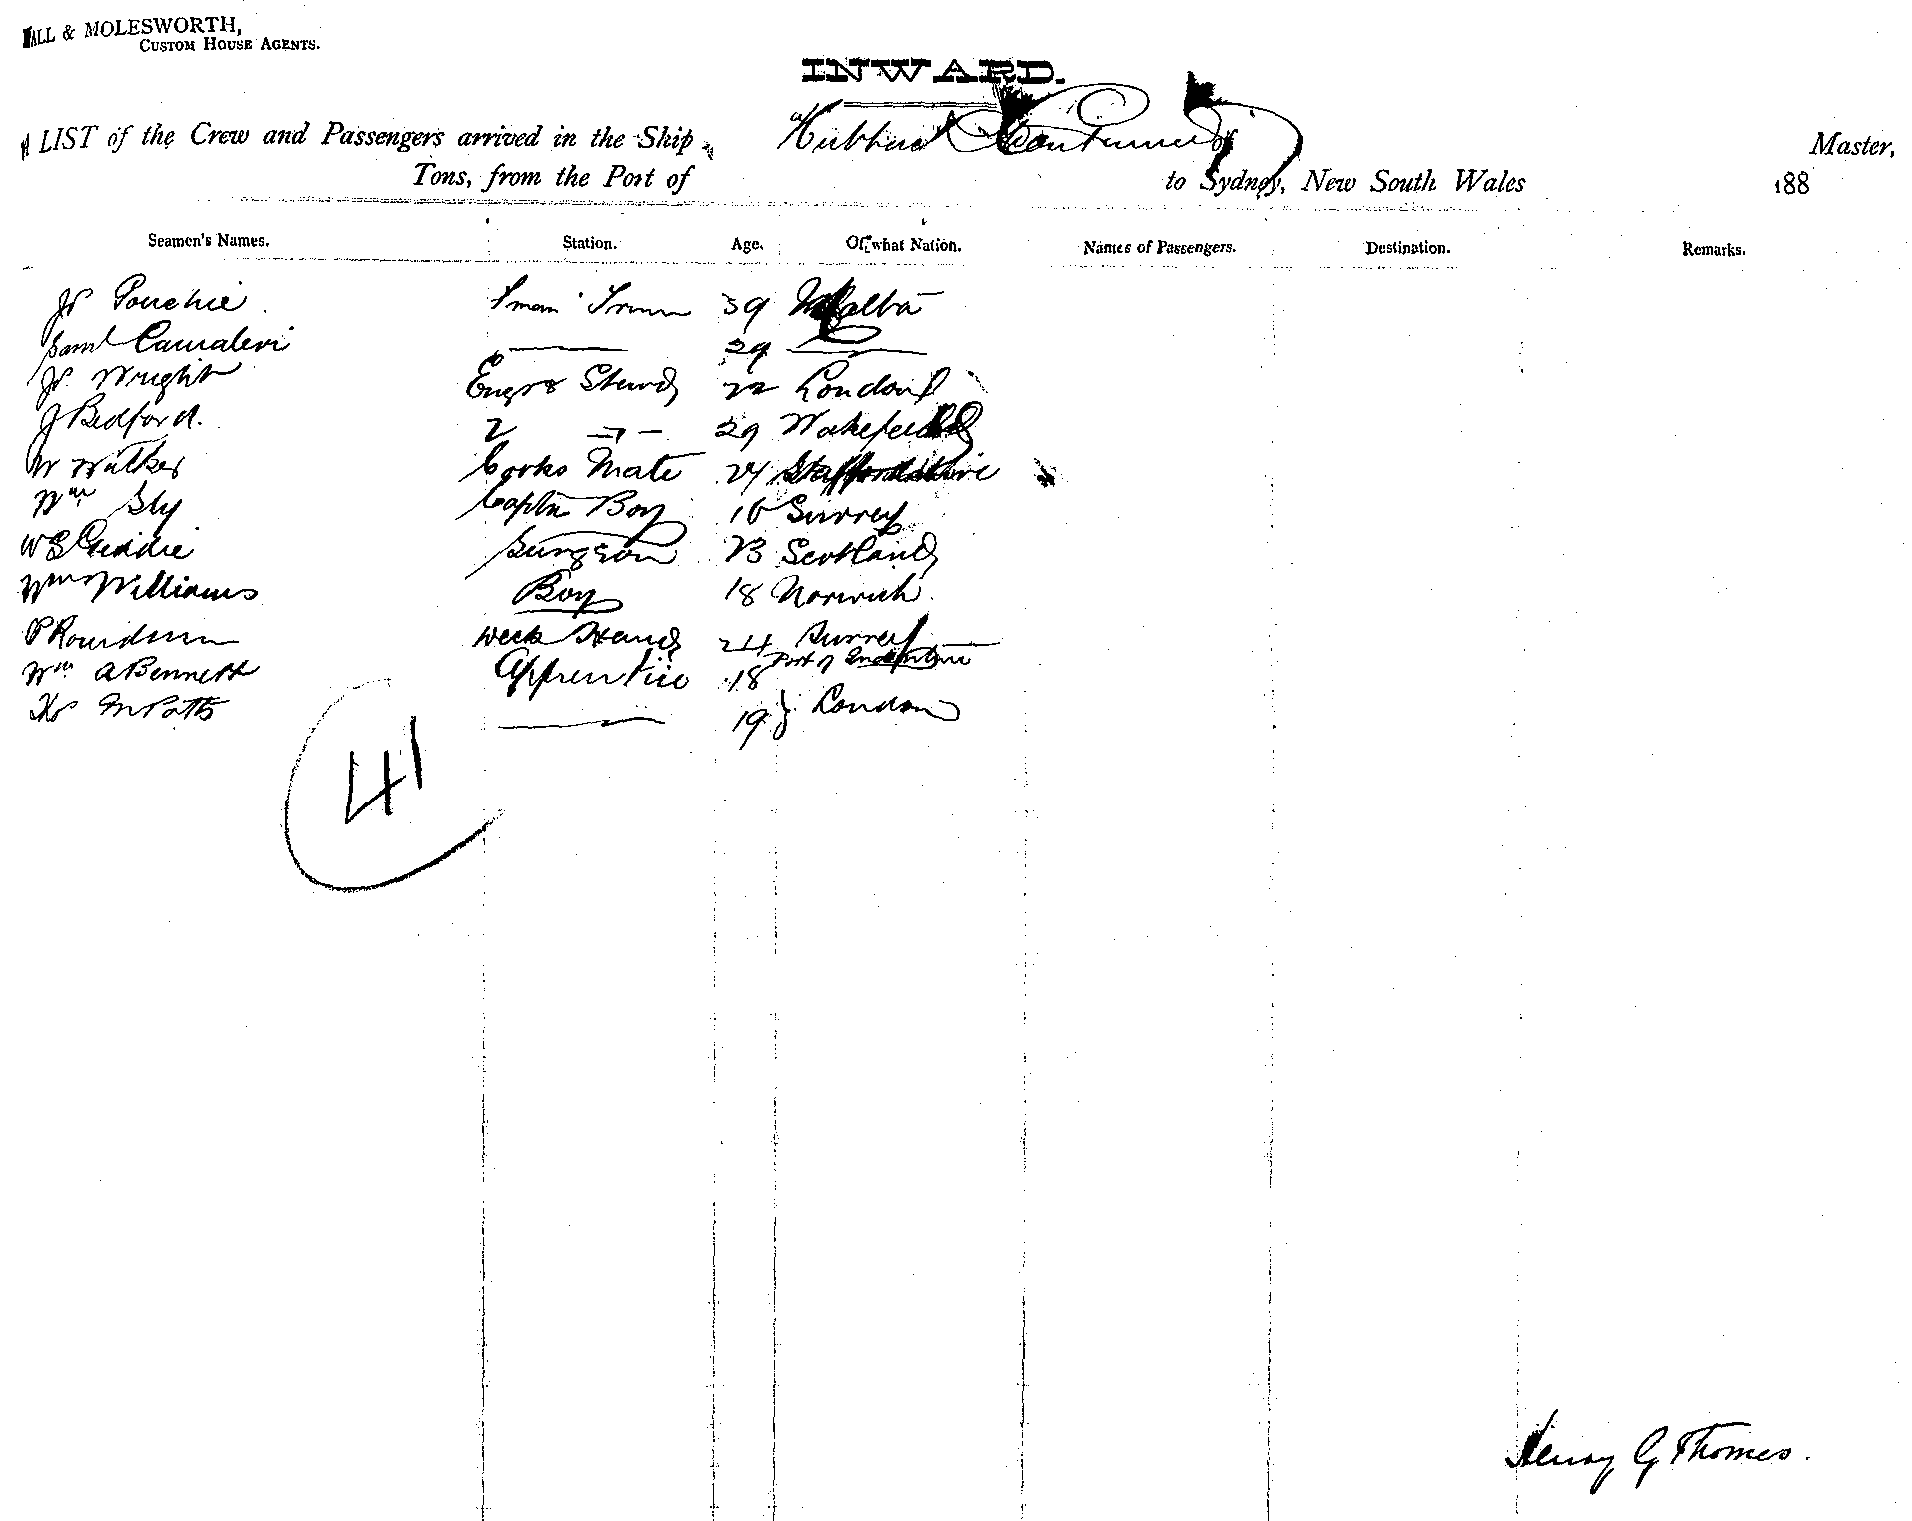 ALL & MOLESWORTH,
CUSTOM HOUSE AGENTS.
INWARD.
A LIST of the Crew and Passengers arrived in the Ship "Hubbuck Continued of Master,
Tons, from the Port of to Sydney, New South Wales 188
Seamen's Names. Station. Age. Of what Nation. Names of Passengers. Destination. Remarks.
Js Pouchie 39 Malta
Saml Camaleri — 29 —
Js Wright Engrs Stewd 22 London
J Bedford. 2 — 29 Wakefield
W Walker Cooks Mate 24 Staffordshire
Wm Sly Captn Boy 16 Surrey
W S Geddie Surgeon 23 Scotland
Wm Williams Boy 18 Norwich.
P Rowidson Deck Hand 24 Surrey
Wm A Bennett Apprentice 18 Port of Indenture
Ths M Potts — 19 } London
41
Henry G Thomas.